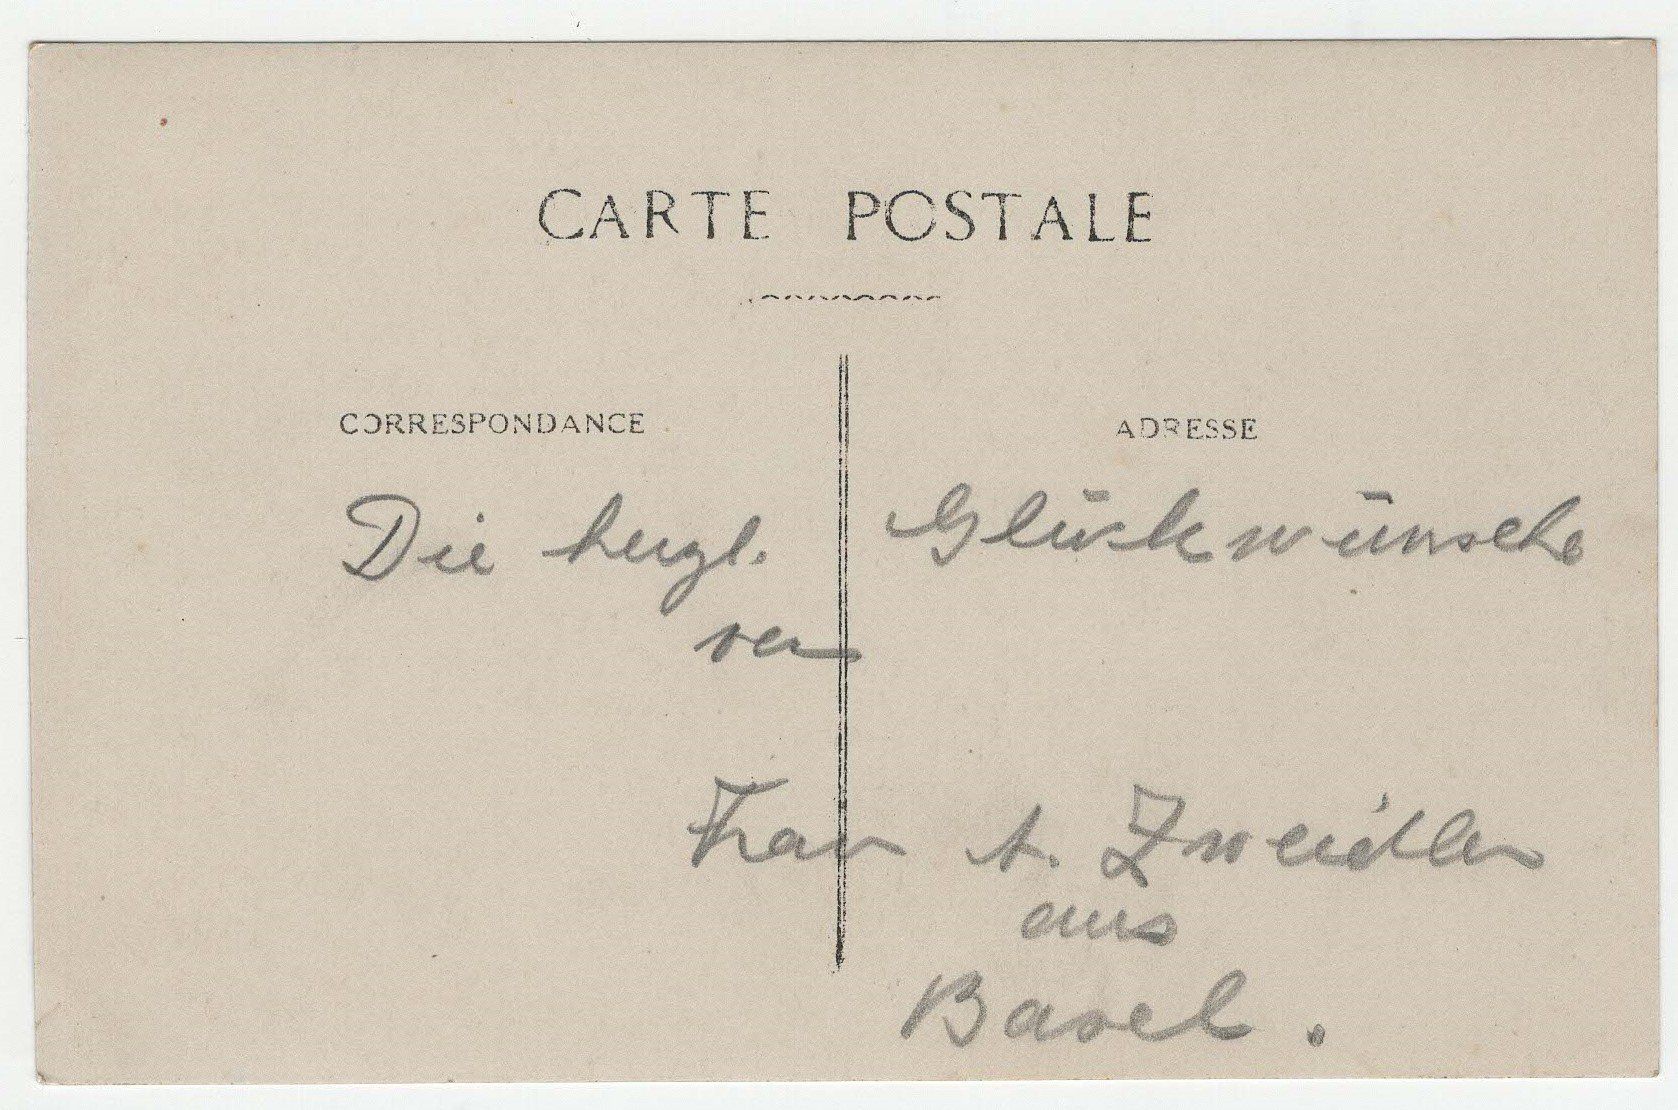 CARTE POSTALE
CORRESPONDANCE
ADRESSE
Die herzl. Glückwünsche
von
Frau A. Zweidler
aus
Basel.